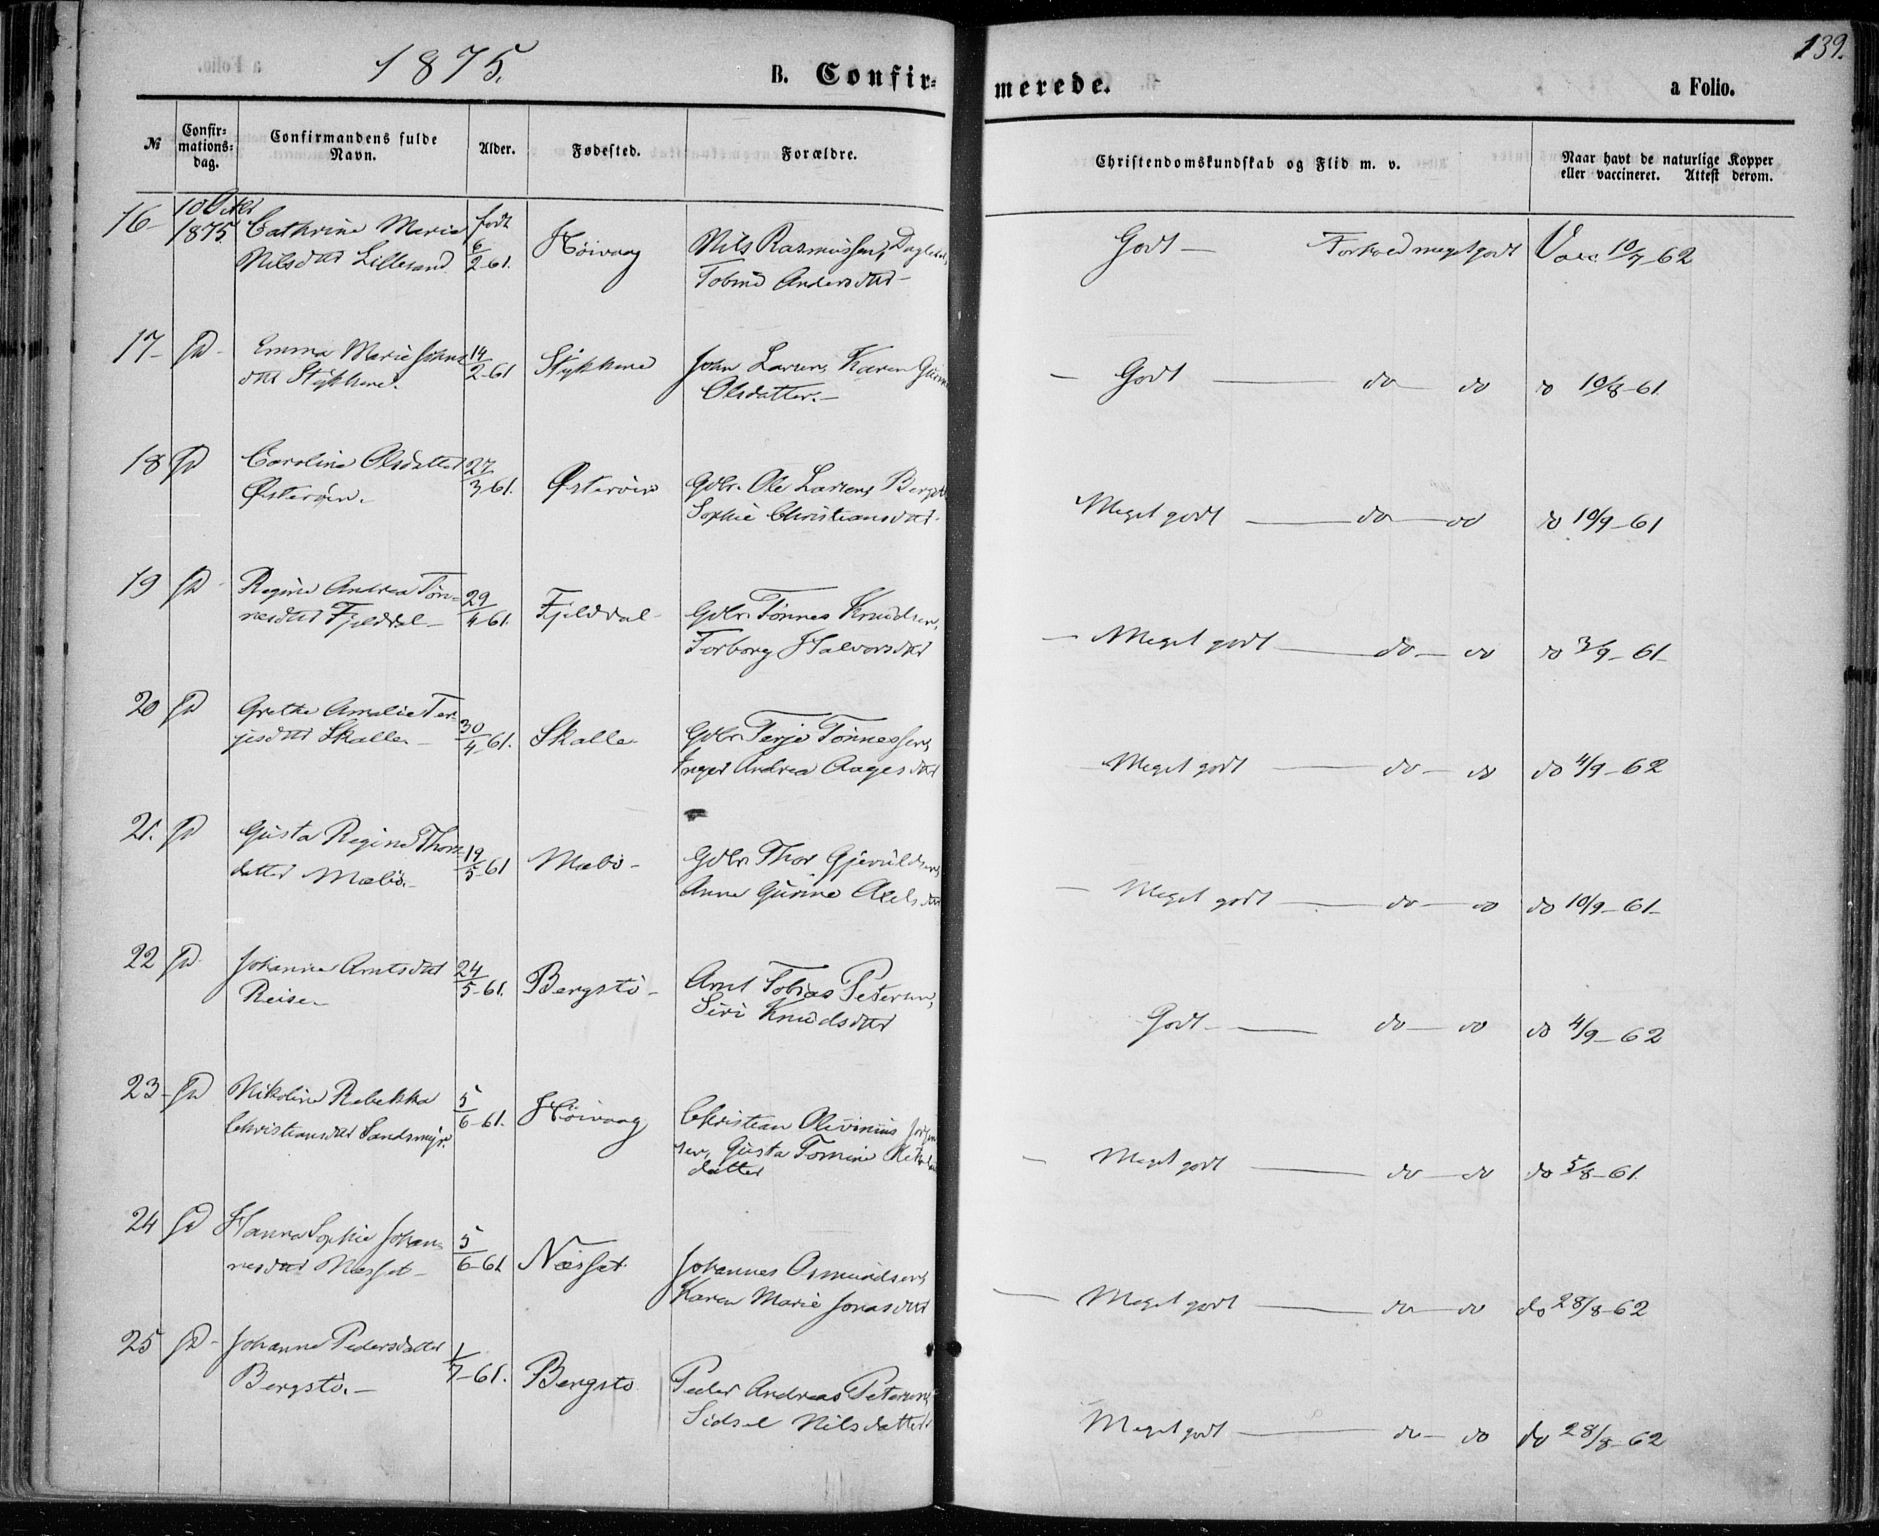 1875.
B. Confir-
merede.
a Folio.
139.
№
Confir-
mations-
dag.
Confirmandens fulde
Navn.
Alder.
Fødested.
Forældre.
Christendomskundskab og Flid m. v.
Naar havt de naturlige Kopper
eller vaccineret. Attest derom.
16- 10 Octbr 1875. Cathrine Marie født 6/2-61. Høivaag Nils Rasmussen, Godt — Forhold meget godt Vacc 10/7-62
Nilsdttr Lillesand Andersdttr-
17- Do- Emma Marie Johns 14/2-61 Stykkene John Larsen, Karen - Godt — do — do do 10/8-61.
dttr Stykkene. Olsdatter.-
18 Do Caroline Olsdatter 27/3-61. Østerøen Gdbr. Ole Larsen, Meget godt — do — do do 10/9-61
Østerøen. Sophie Christiansdttr.
19 Do Regine Andrea Tøn- 29/4-61. Fjelddal- Gdbr. Tønnes Knudsen, - Meget godt — do — do do 3/9-61-
nesdttr Fjelddal- Torborg Halvorsdttr
20 Do Grethe Amalie Ter- 30/4-61. Skalle Gdbr. Terje Tønnessen, Meget godt — do — do do 4/9-62
jesdttr Skalle- Inger Andrea Aagesdttr
21. Do Gusta Regine Thors- 19/5-61 Mæbø- Gdbr. Thor Gjeruldsen, - Meget godt — do — do do 10/9-61-
datter Mæbø.- Anne Gurine Axelsdttr
22 Do. Johanne Arntsdttr 24/5-61. Bergstø- Arnt Tobias Petersen, Godt — do — do do 4/9-62
Reisen Siri Knudsdttr
23- Do Nikoline Rebekka 5/6-61. Høivaag Christian Olivinius - Meget godt — do — do do 5/8-61.
Christiansdttr Sandsmyr. sen, Gusta Tomine
datter
24 Do Hanna Sophie Johan- 5/6-61. Næsset Johannes Osmundsen, - Meget godt — do — do do 28/8-62
nesdttr Næsset- Karen Marie Jonasdttr
25 Do- Johanne Pedersdatter 1/7-61. Bergstø Peder Andreas Petersen, Meget godt — do — do do 28/8-62
Bergstø.- Sidsel Nilsdatter